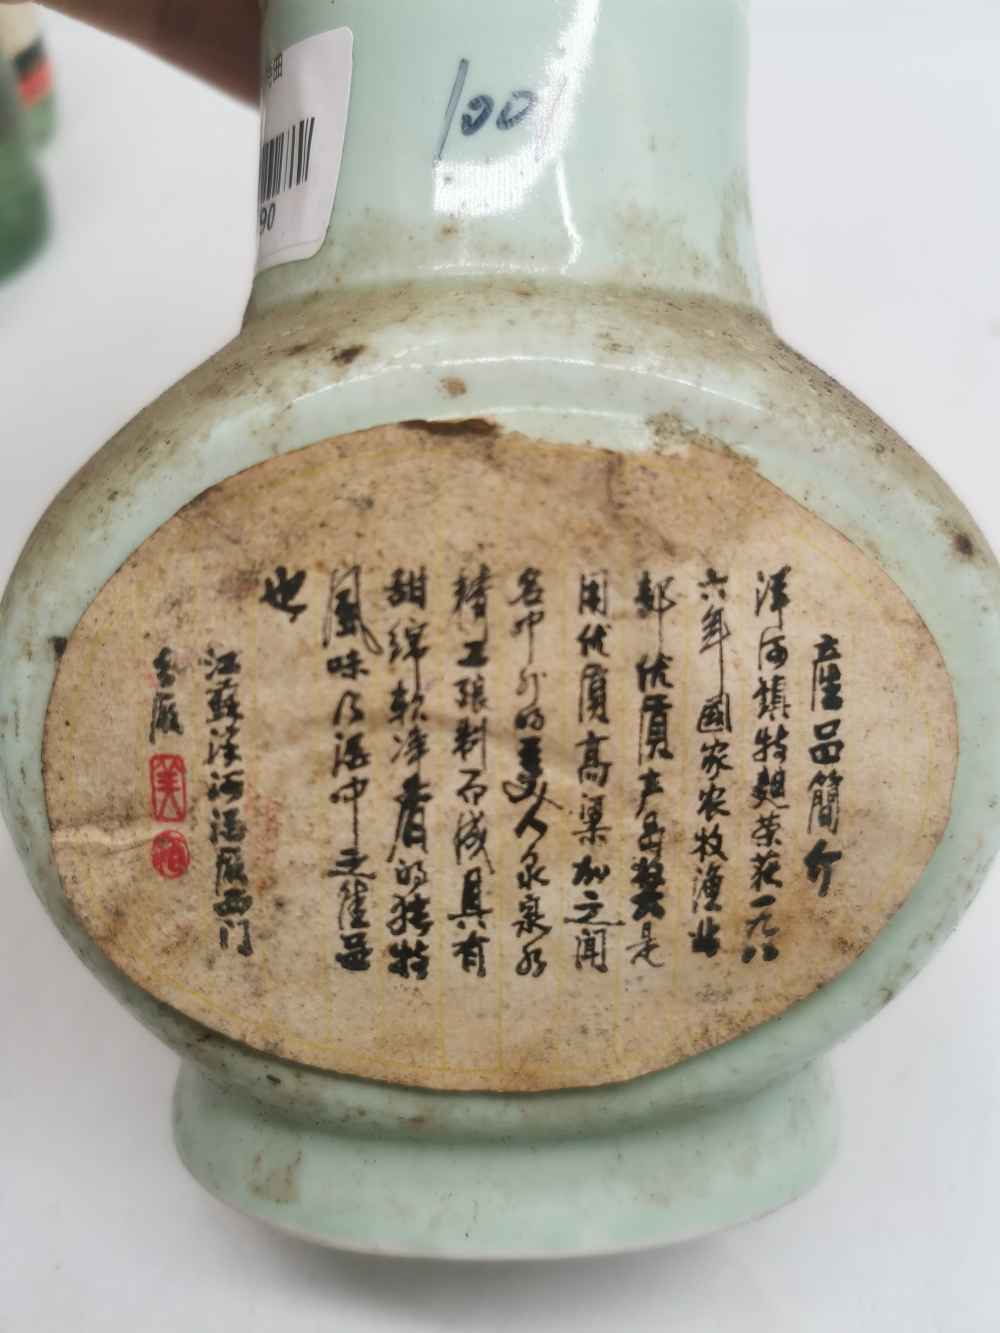 1001
90
產品簡介
洋河镇特麯荣获一九八
六年國家农牧渔业
部优质产品奖是
用优质高粱加之闻
名中外的美人泉泉水
精工酿制而成具有
甜绵软净香的独特
風味乃酒中之佳品
也
江蘇洋河酒厰西门
分厰
美酒